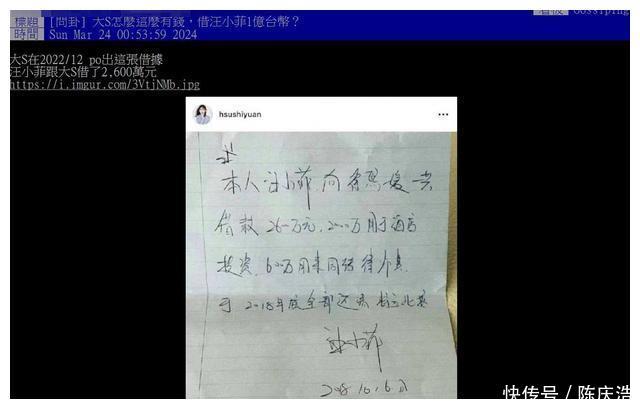 Gossiping
標題 [問卦] 大S怎麼這麼有錢，借汪小菲1億台幣？
時間 Sun Mar 24 00:53:59 2024
大S在2022/12 po出這張借據
汪小菲跟大S借了2,600萬元
https://i.imgur.com/3VtjNMb.jpg
hsushiyuan
本人汪小菲向徐熙媛共
借款2600万元，2000万用于酒店
投资，600万用来
于2018年底全部还清
汪小菲
快传号 / 陈庆浩